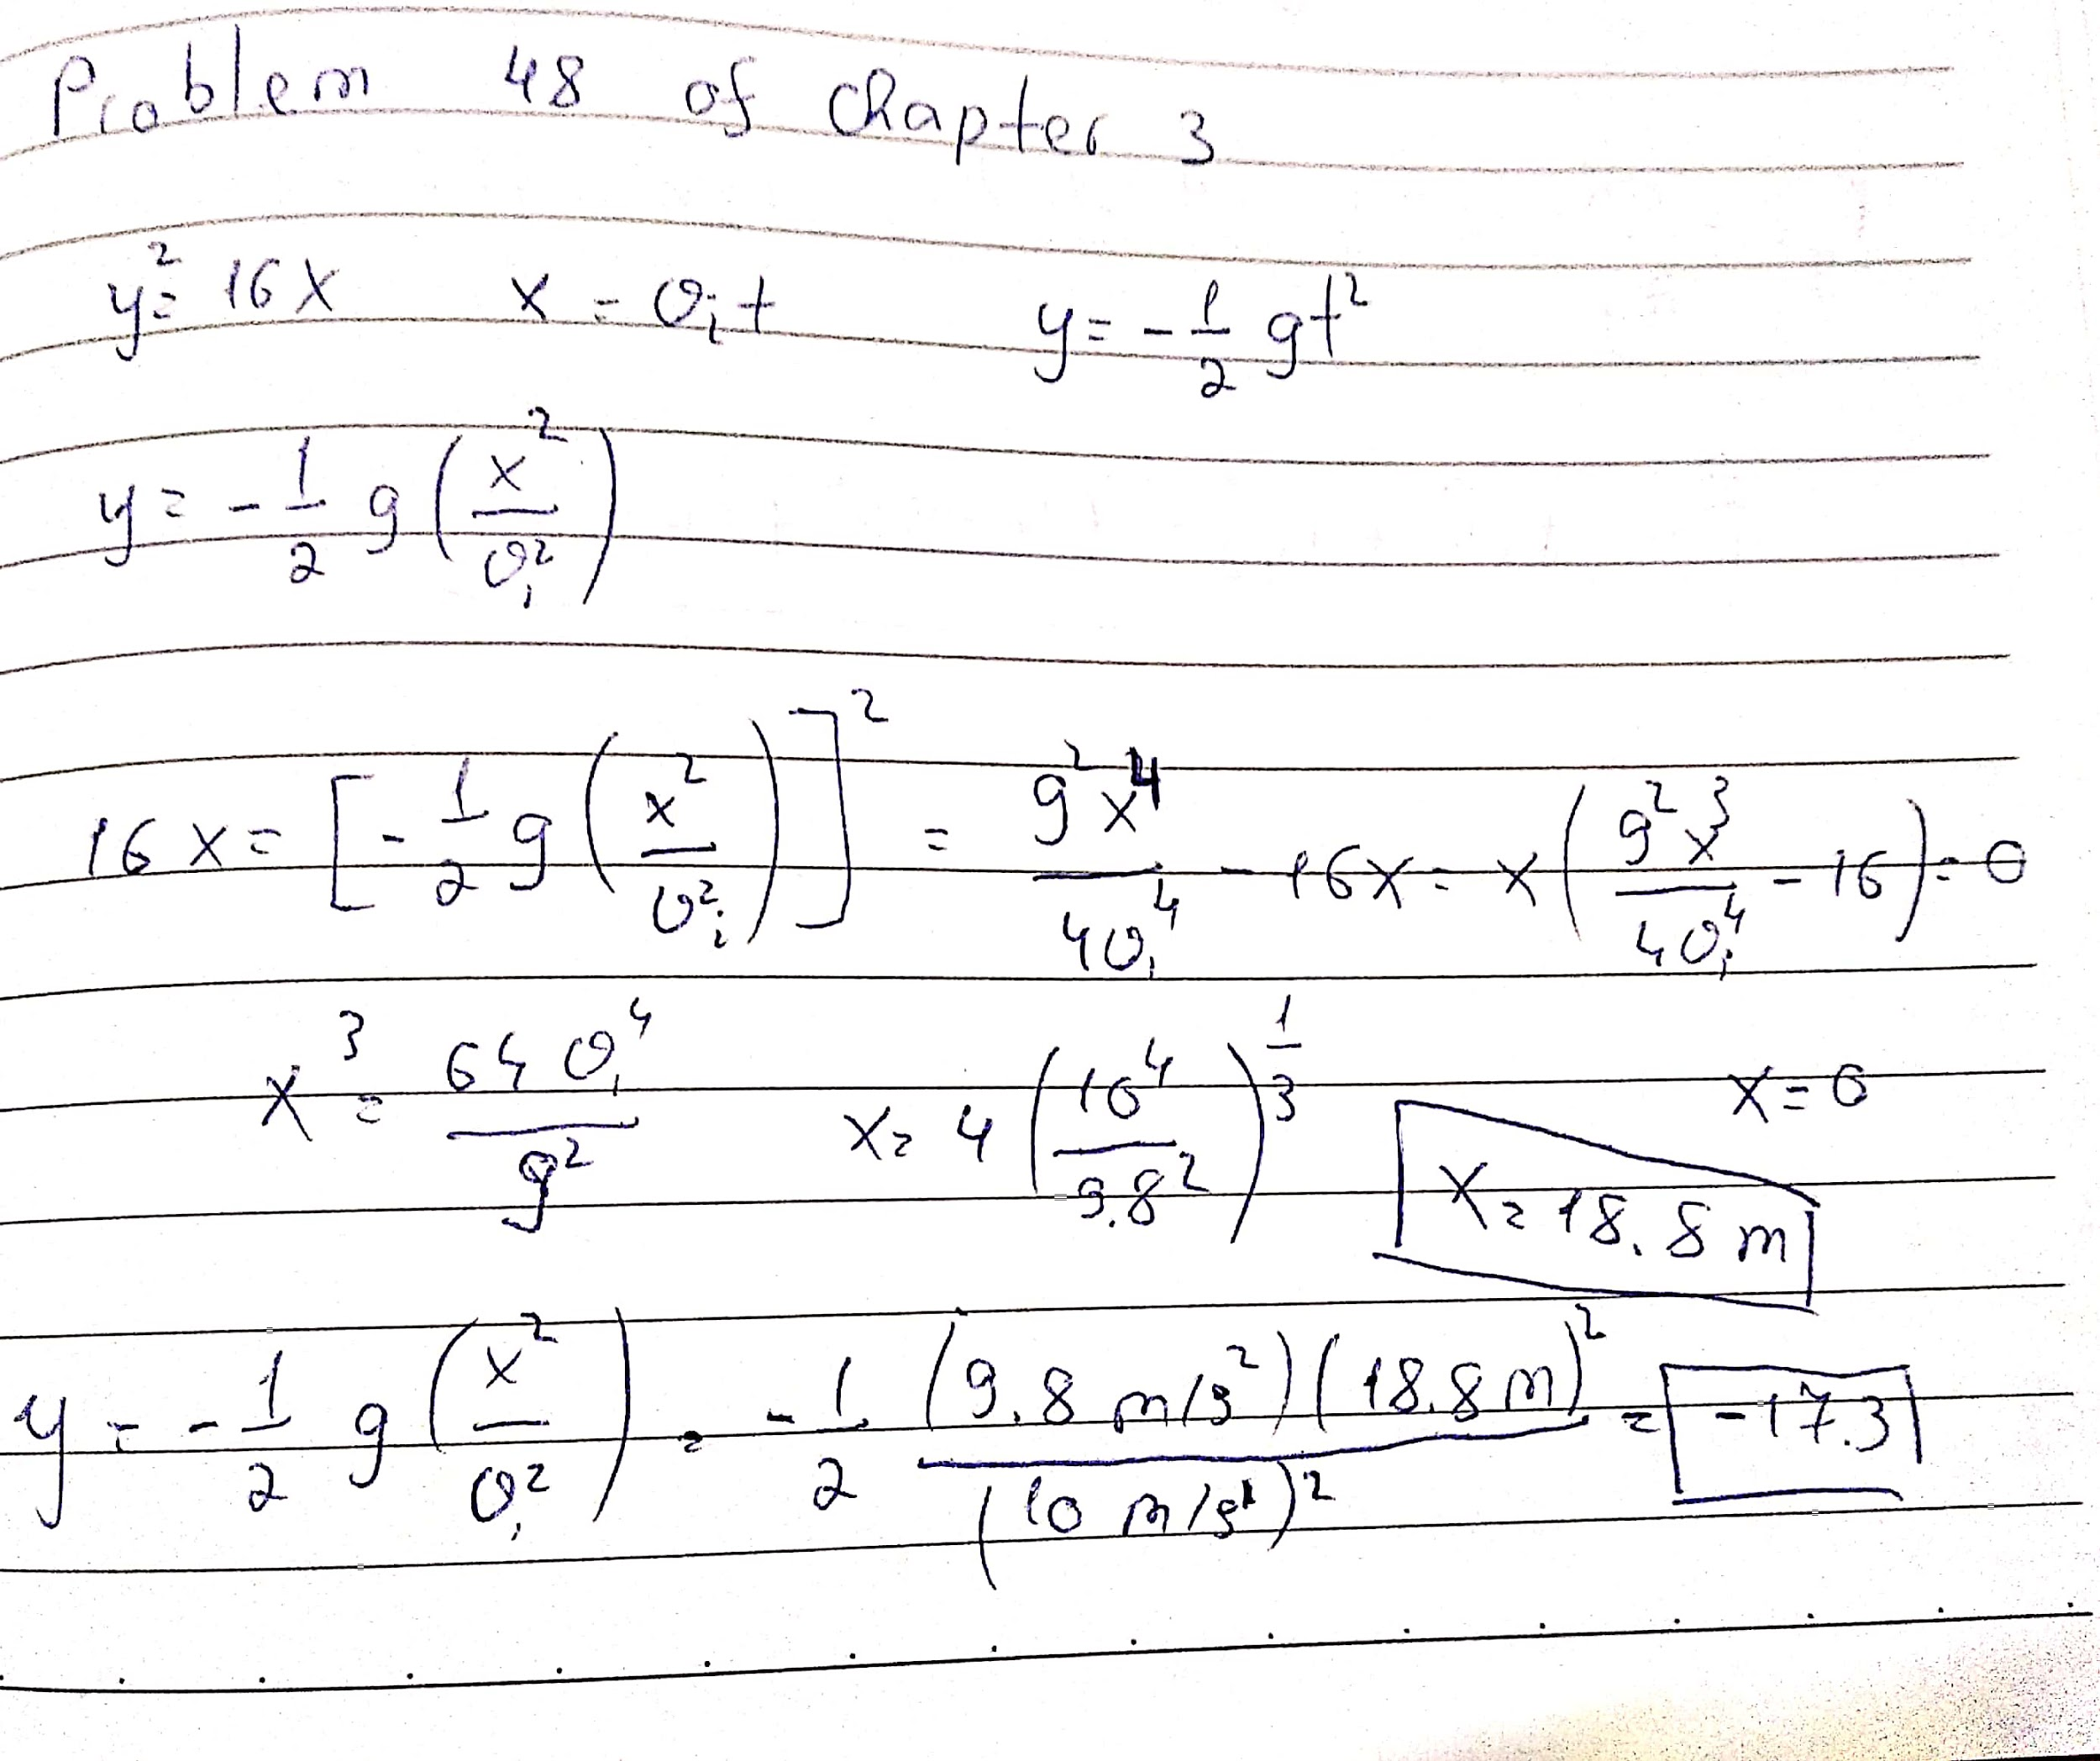 Problem 48 of chapter 3
y² = 16x x = v_i t y = -1/2 gt²
y = -1/2 g (x²/v_i²)
16x = [-1/2 g (x²/v_i²)]² = g²x⁴/4v_i⁴ - 16x = x (g²x³/4v_i⁴ - 16) = 0
x³ = 64v_i⁴/g² x = 4 (10⁴/9.8²)^1/3 x = 0
x = 18.8 m
y = -1/2 g (x²/v_i²) = -1/2 (9.8 m/s²)(18.8 m)²/(10 m/s)² = -17.3